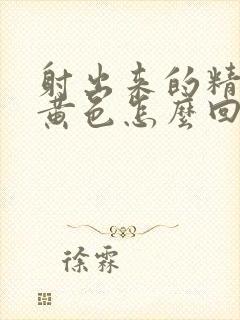 射出来的精
黄色怎麼回
徐霖